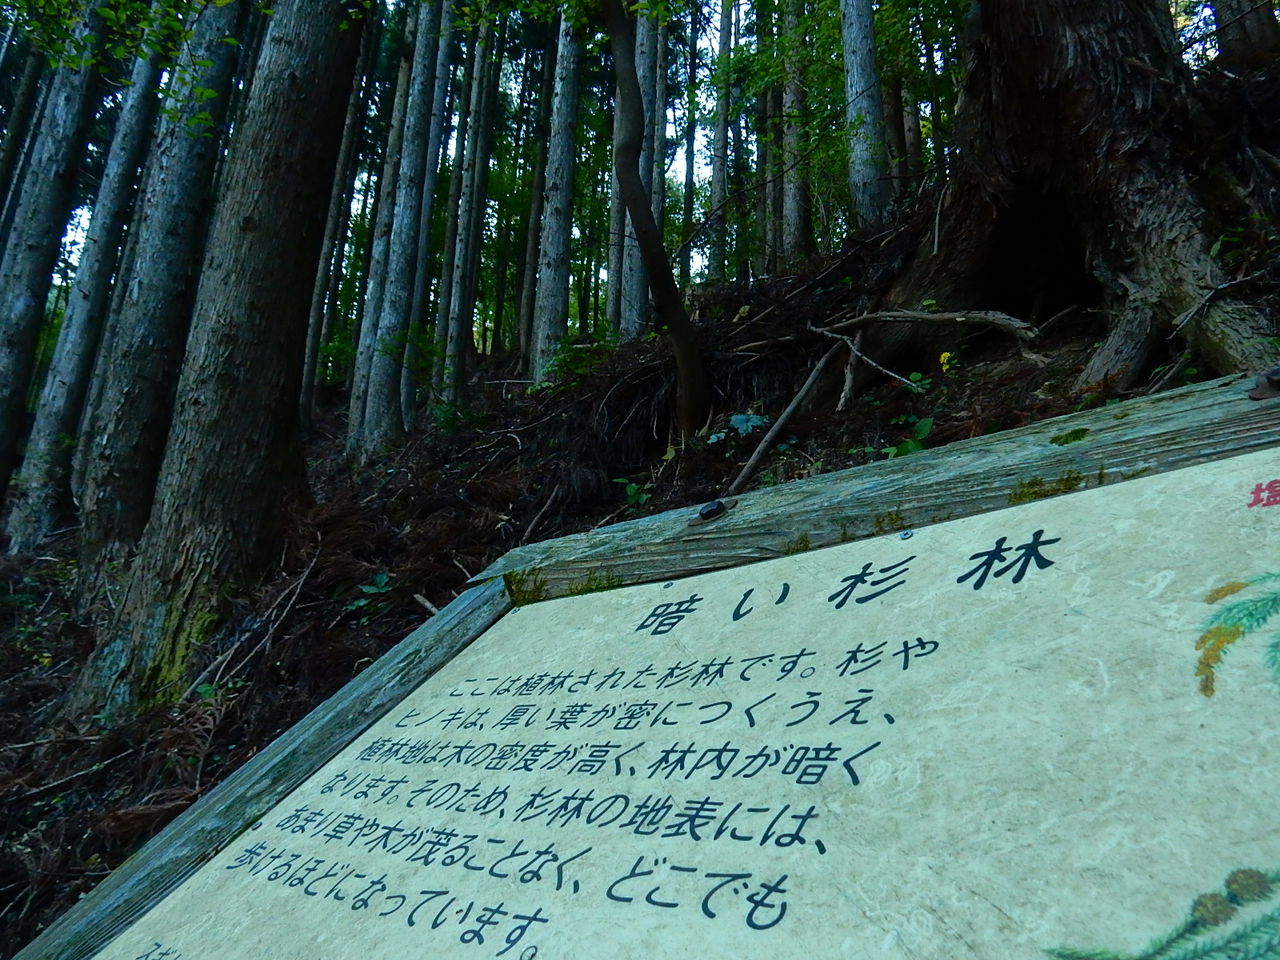 暗い杉林
ここは植林された杉林です。杉や
ヒノキは、厚い葉が密につくうえ、
植林地は木の密度が高く、林内が暗く
なります。そのため、杉林の地表には、
あまり草や木が茂ることなく、どこでも
歩けるほどになっています。
塩